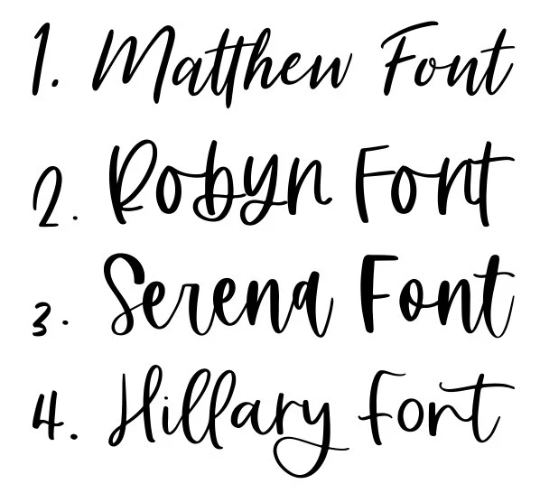 1. Matthew Font
2. Robyn Font
3. Serena Font
4. Hillary Font